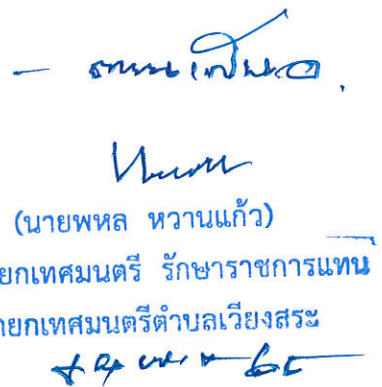 - ตามเสนอ
(นายพหล หวานแก้ว)
ยกเทศมนตรี รักษาราชการแทน
ายกเทศมนตรีตำบลเวียงสระ